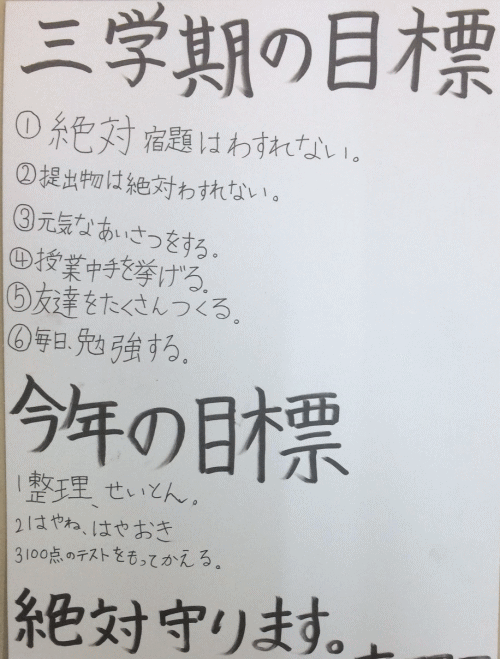 三学期の目標
①絶対宿題はわすれない。
②提出物は絶対わすれない。
③元気なあいさつをする。
④授業中手を挙げる。
⑤友達をたくさんつくる。
⑥毎日、勉強する。
今年の目標
1整理、せいとん。
2はやね、はやおき
3100点のテストをもってかえる。
絶対守ります。